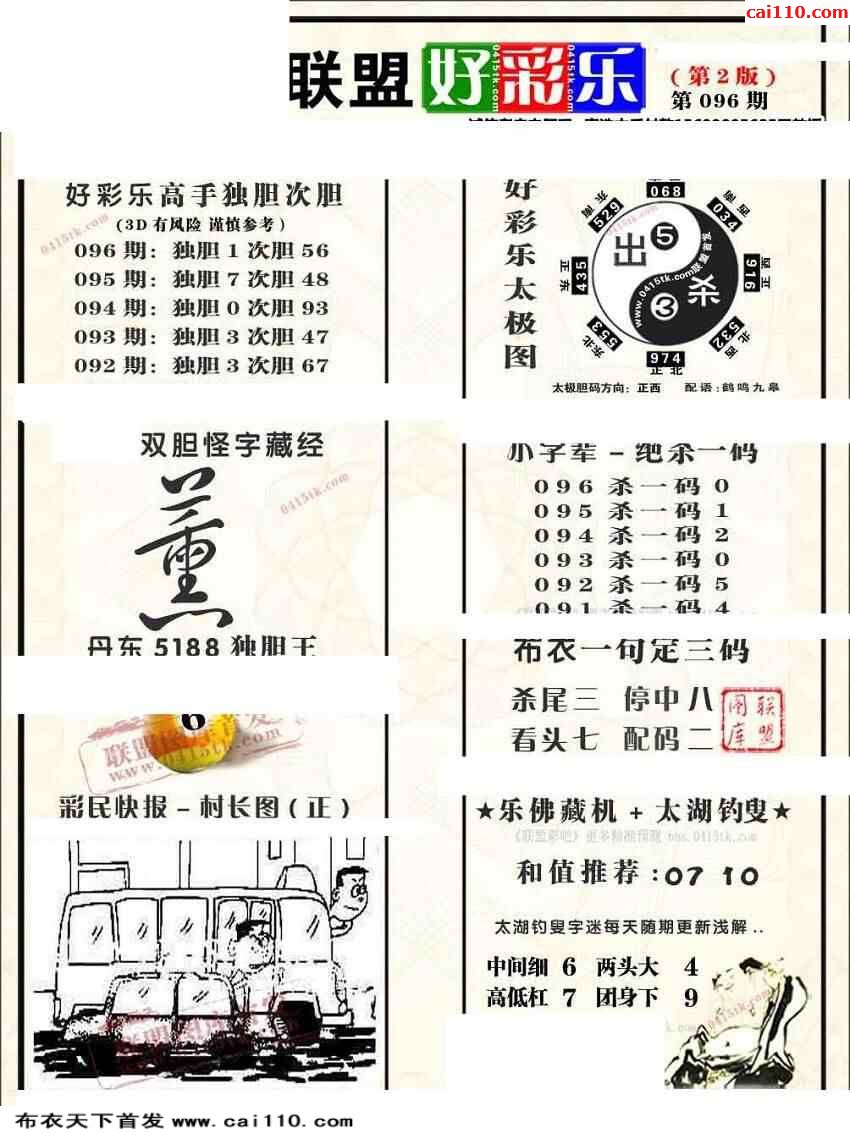 cai110.com
联盟 好彩乐
(第2版)
第096期
好彩乐高手独胆次胆
(3D有风险 谨慎参考)
096期: 独胆1次胆56
095期: 独胆7次胆48
094期: 独胆0次胆93
093期: 独胆3次胆47
092期: 独胆3次胆67
0415tk.com
好彩乐太极图
正南
068
西南
034
正西
916
西北
532
正北
974
东北
553
正东
435
东南
529
出5
杀3
www.0415tk.com联盟首发
太极胆码方向: 正西 配语: 鹤鸣九皋
双胆怪字藏经
薰
0415tk.com
丹东5188独胆王
6
www.0415tk.com
小字辈-绝杀一码
096 杀一码 0
095 杀一码 1
094 杀一码 2
093 杀一码 0
092 杀一码 5
091 杀一码 4
布衣一句定三码
杀尾三 停中八
看头七 配码二
联盟图库
彩民快报-村长图(正)
★乐佛藏机+太湖钓叟★
《联盟彩吧》更多精准预测 bbs.0415tk.com
和值推荐:07 10
太湖钓叟字迷每天随期更新浅解..
中间细 6 两头大 4
高低杠 7 团身下 9
0415tk.com
布衣天下首发 www.cai110.com